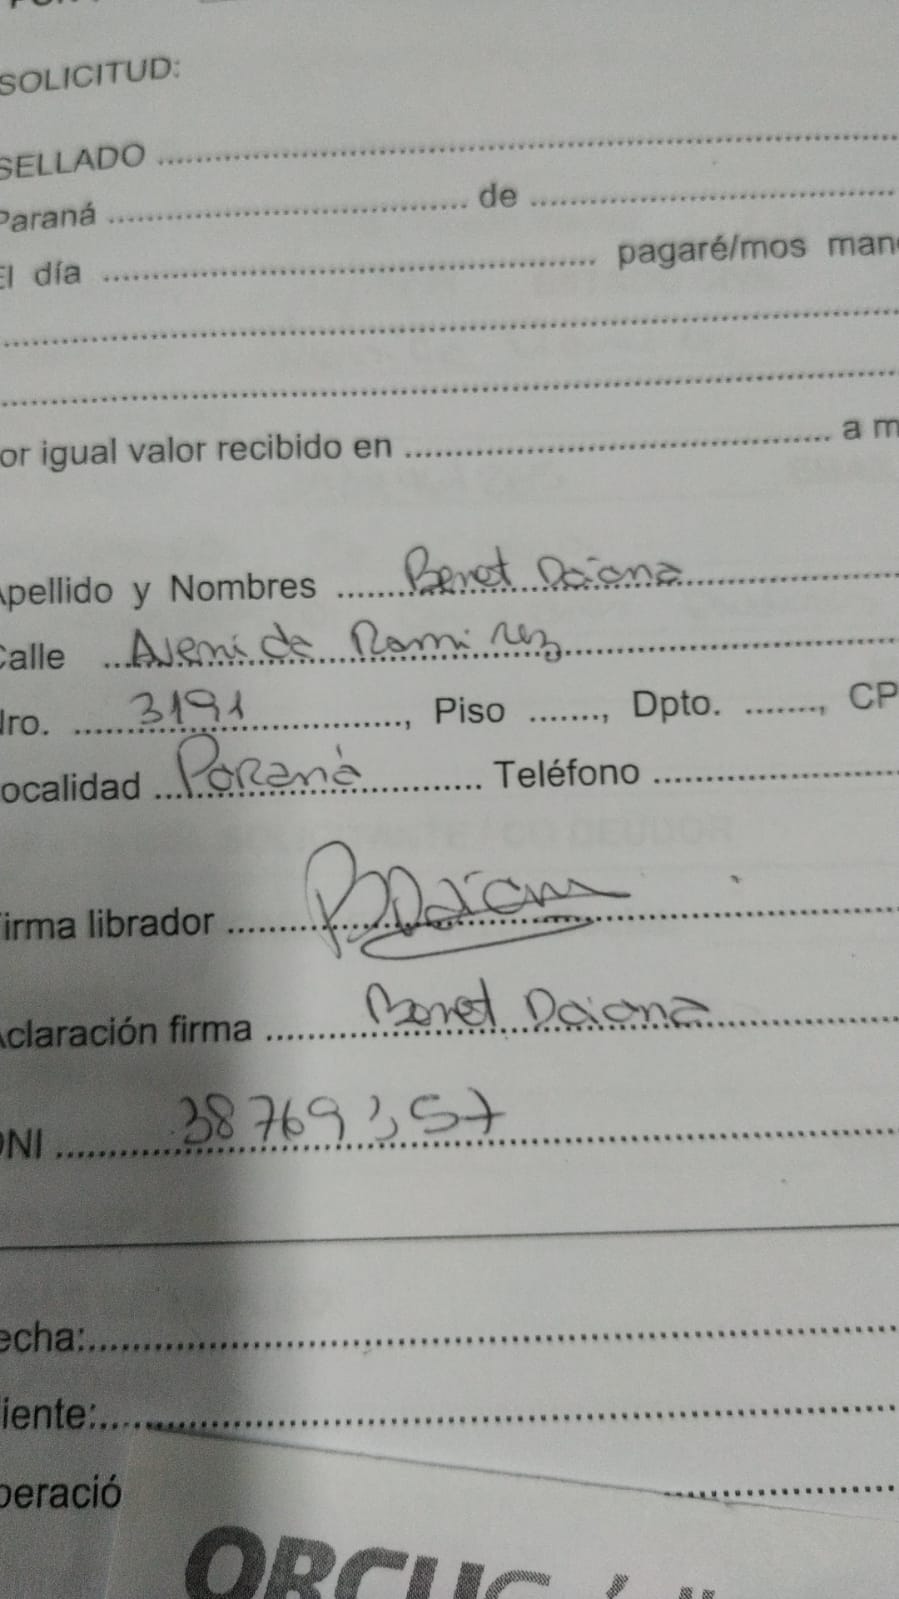 SOLICITUD:
SELLADO ........................
Paraná ........................ de ........................
El día ........................ pagaré/mos man
........................
........................
or igual valor recibido en ........................ a m
Apellido y Nombres ..... Beret Daiana
Calle ... Avenida Ramirez
Nro. ..... 3191 ....., Piso ......., Dpto. ......., CP
ocalidad ... Paraná ..... Teléfono ........................
Firma librador ..... BDaiana
Aclaración firma ..... Beret Daiana
DNI ..... 38769357
echa:........................
liente:........................
peració ........................